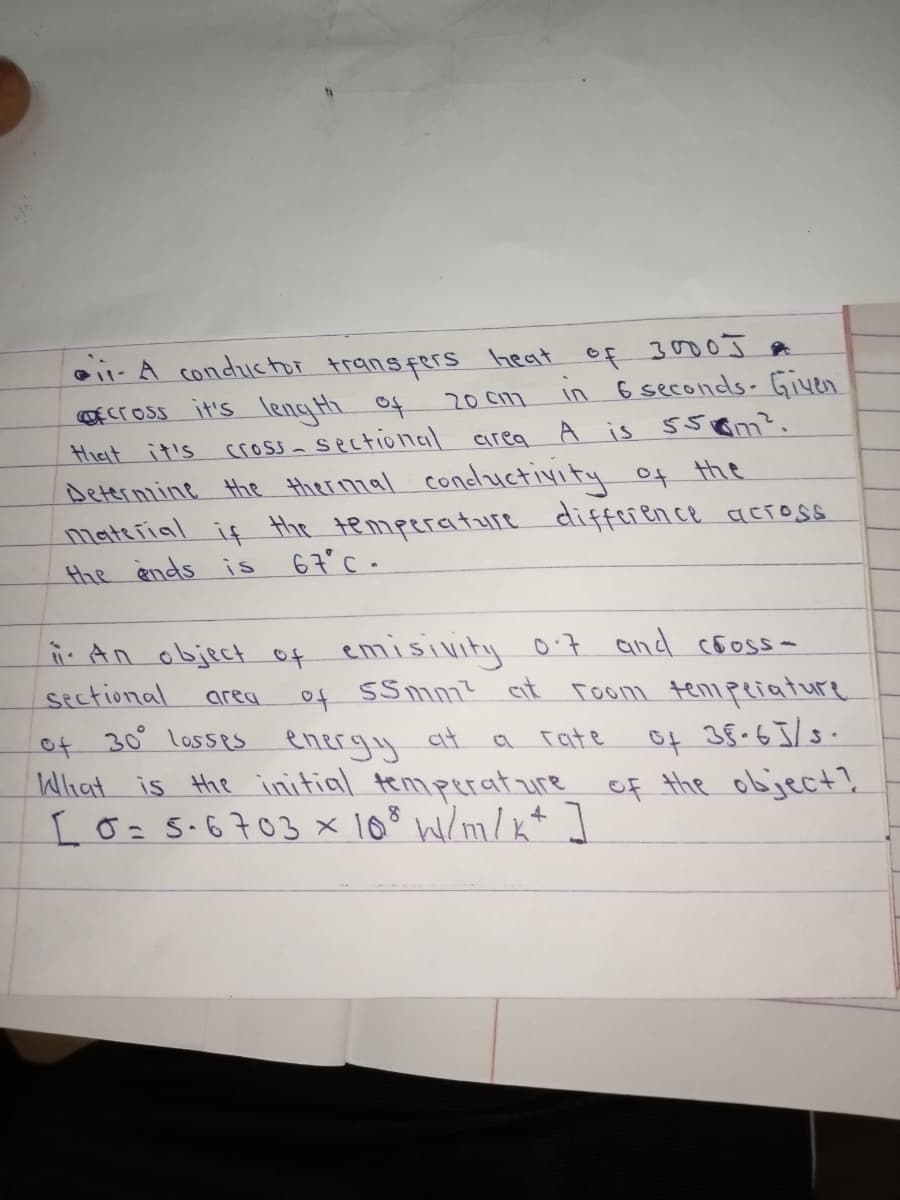 ii- A conductor transfers heat of 3000J
across it's length of 20 cm in 6 seconds. Given
that it's cross-sectional area A is 55 cm².
Determine the thermal conductivity of the
material if the temperature difference across
the ends is 67°C.
ii. An object of emisivity 0.7 and cross-
sectional area of 55mm² at room temperature
of 30° losses energy at a rate of 35.6J/s.
What is the initial temperature of the object?
[σ = 5.6703 × 10⁸ W/m/k⁴]